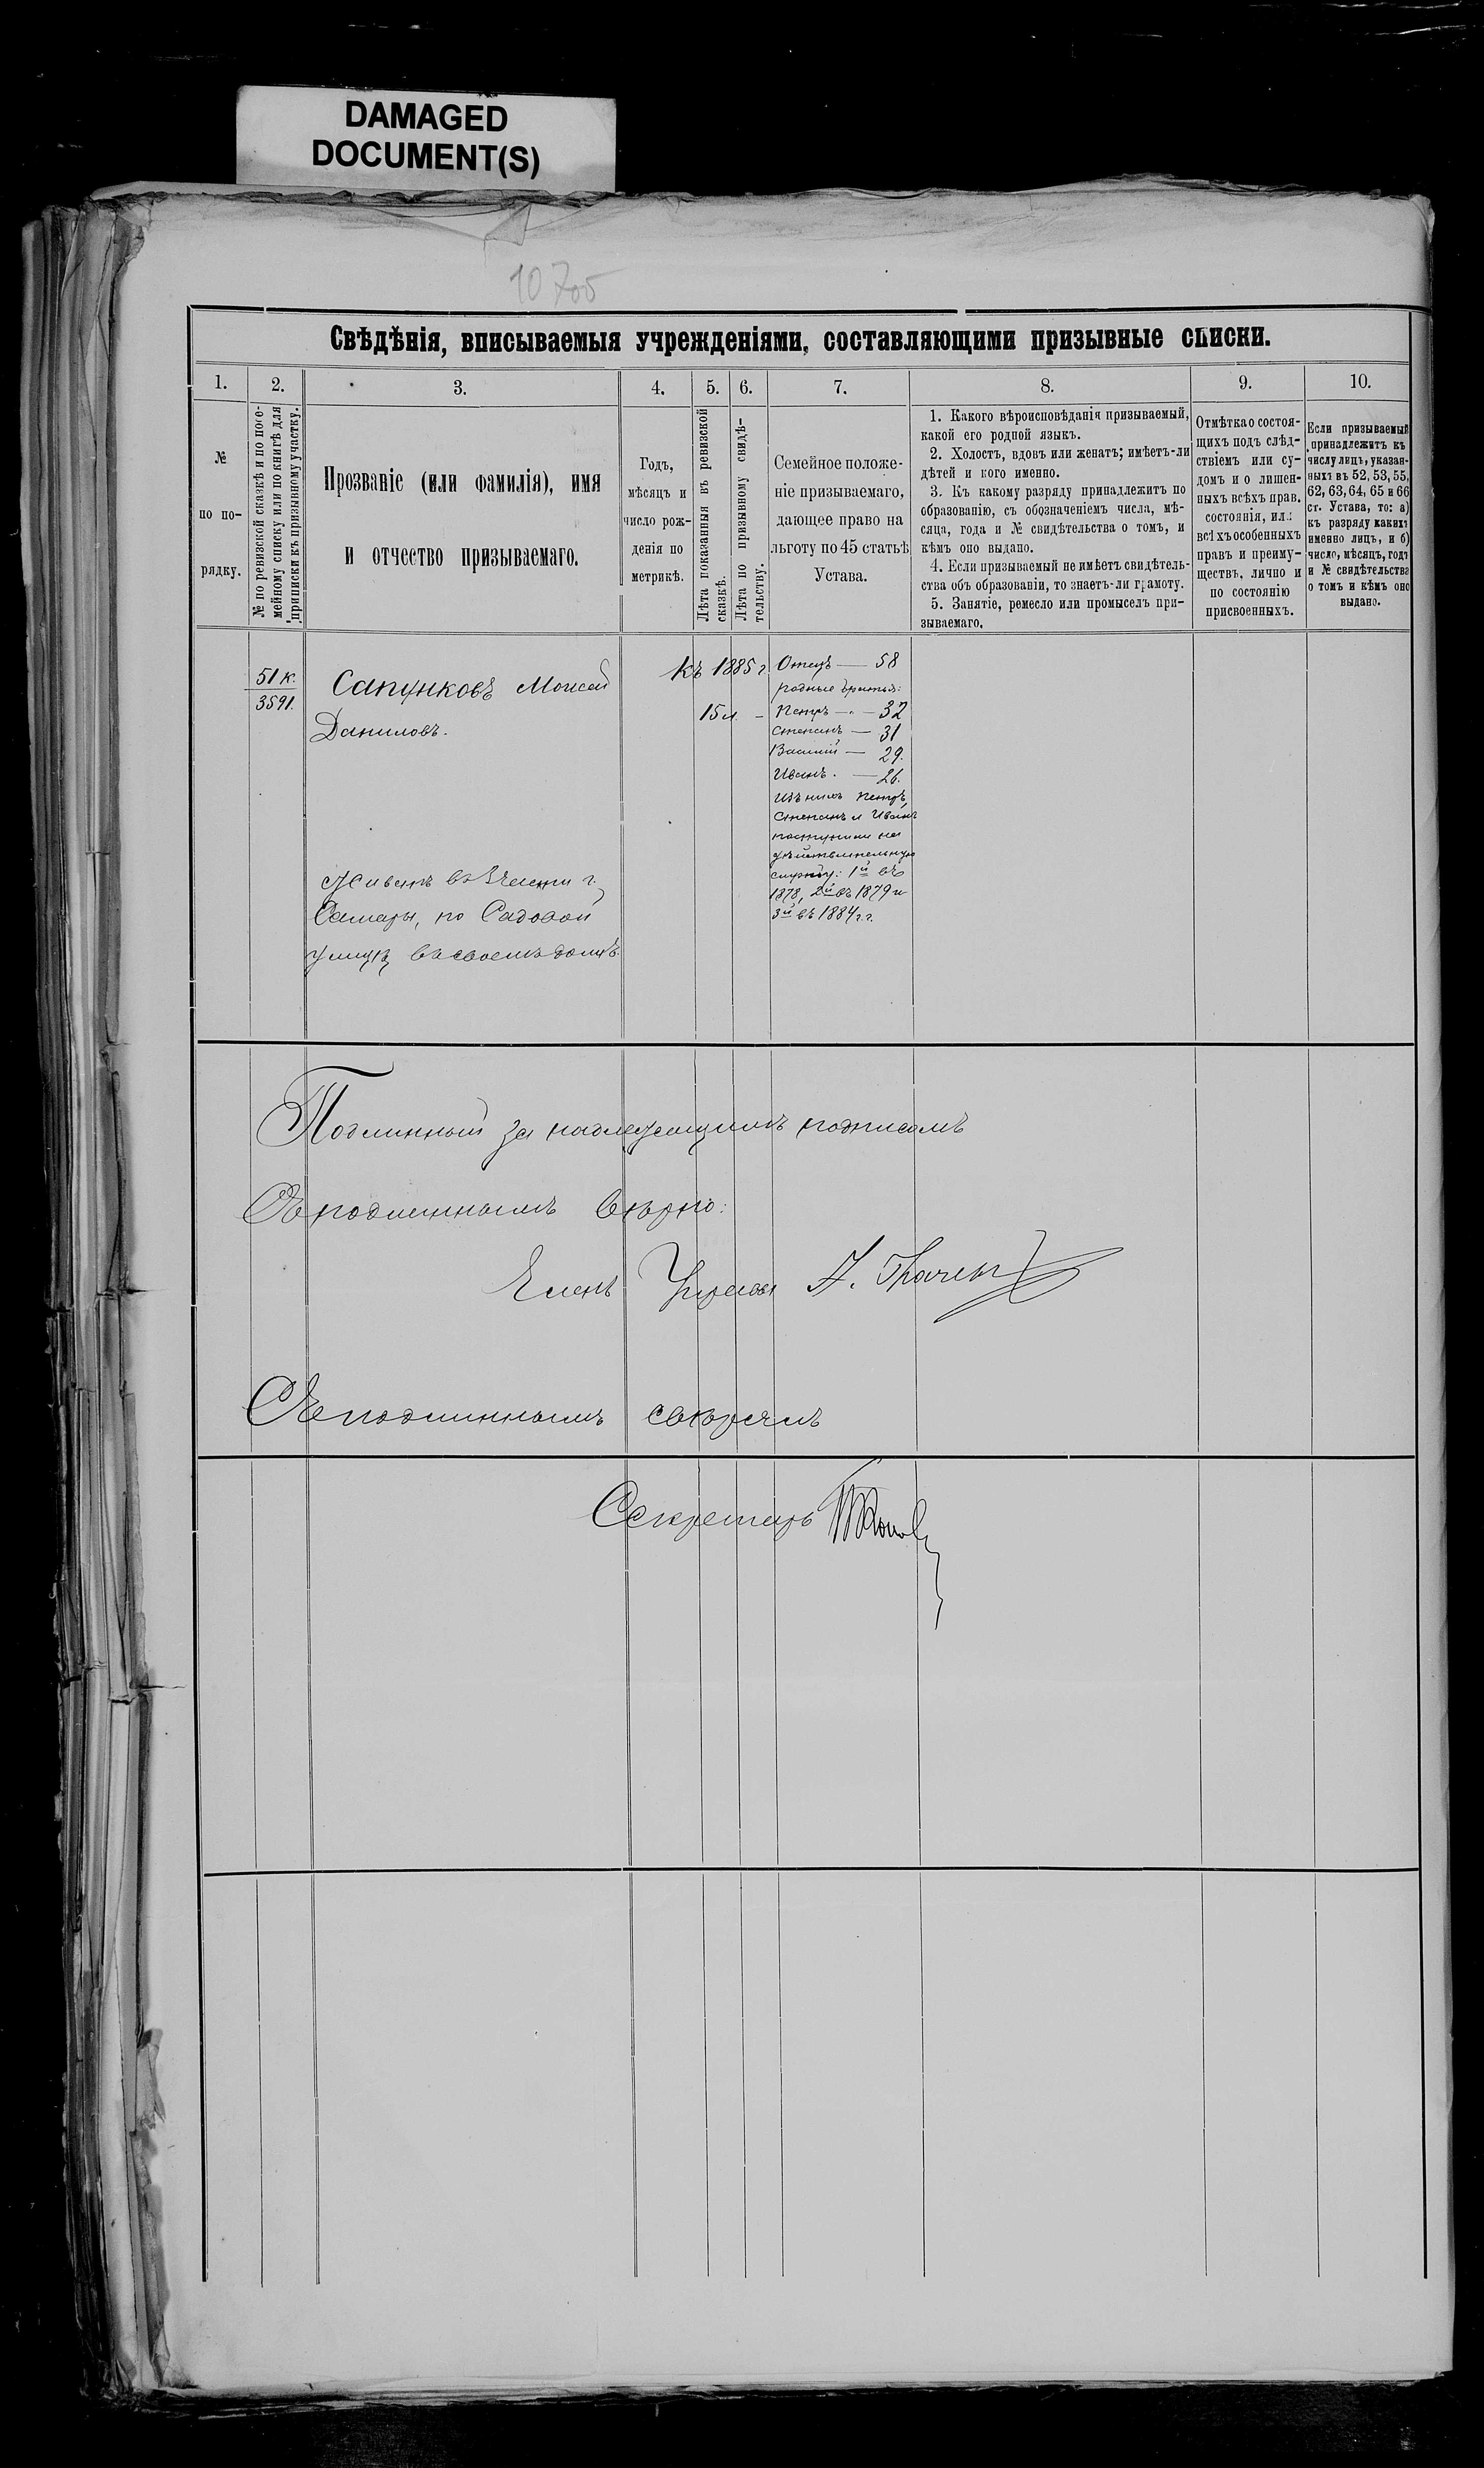 DAMAGED
DOCUMENT(S)
10700
Свѣдѣнія, вписываемыя учрежденіями, составляющими призывные списки.
1.
2.
3.
4.
5.
6.
7.
8.
9.
10.
№
по по-
рядку.
№ по ревизской сказкѣ и по посе-
мейному списку или по книгѣ для
приписки къ призывному участку.
Прозваніе (или фамилія), имя
и отчество призываемаго.
Годъ,
мѣсяцъ и
число рож-
денія по
метрикѣ.
Лѣта показанныя въ ревизской
сказкѣ.
Лѣта по призывному свидѣ-
тельству.
Семейное положе-
ніе призываемаго,
дающее право на
льготу по 45 статьѣ
Устава.
1. Какого вѣроисповѣданія призываемый,
какой его родной языкъ.
2. Холостъ, вдовъ или женатъ; имѣетъ-ли
дѣтей и кого именно.
3. Къ какому разряду принадлежитъ по
образованію, съ обозначеніемъ числа, мѣ-
сяца, года и № свидѣтельства о томъ, и
кѣмъ оно выдано.
4. Если призываемый не имѣетъ свидѣтель-
ства объ образованіи, то знаетъ-ли грамоту.
5. Занятіе, ремесло или промыселъ при-
зываемаго.
Отмѣтка о состоя-
щихъ подъ слѣд-
ствіемъ или су-
домъ и о лишен-
ныхъ всѣхъ прав.
состоянія, или
всѣхъ особенныхъ
правъ и преиму-
ществъ, лично и
по состоянію
присвоенныхъ.
Если призываемый
принадлежитъ къ
числу лицъ, указан-
ныхъ въ 52, 53, 55,
62, 63, 64, 65 и 66
ст. Устава, то: а)
къ разряду какихъ
именно лицъ, и б)
число, мѣсяцъ, годъ
и № свидѣтельства
о томъ и кѣмъ оно
выдано.
51 к.
3591.
Сапунковъ Моисей
Даниловъ.
Живетъ въ 3 части г.
Самары, по Садовой
улицѣ въ своемъ домѣ.
Къ 1885 г.
15 л. –
Отецъ — 58
родные братья:
Петръ — 32
Степанъ — 31
Василій — 29.
Иванъ. — 26.
Изъ нихъ Петръ,
Степанъ и Иванъ
поступили на
дѣйствительную
службу: 1й въ
1878, 2й въ 1879 и
3й въ 1884 г.г.
Подлинный за надлежащимъ подписомъ
Съ подлиннымъ вѣрно:
Членъ Управы
Съ подлиннымъ свѣрялъ
Секретарь